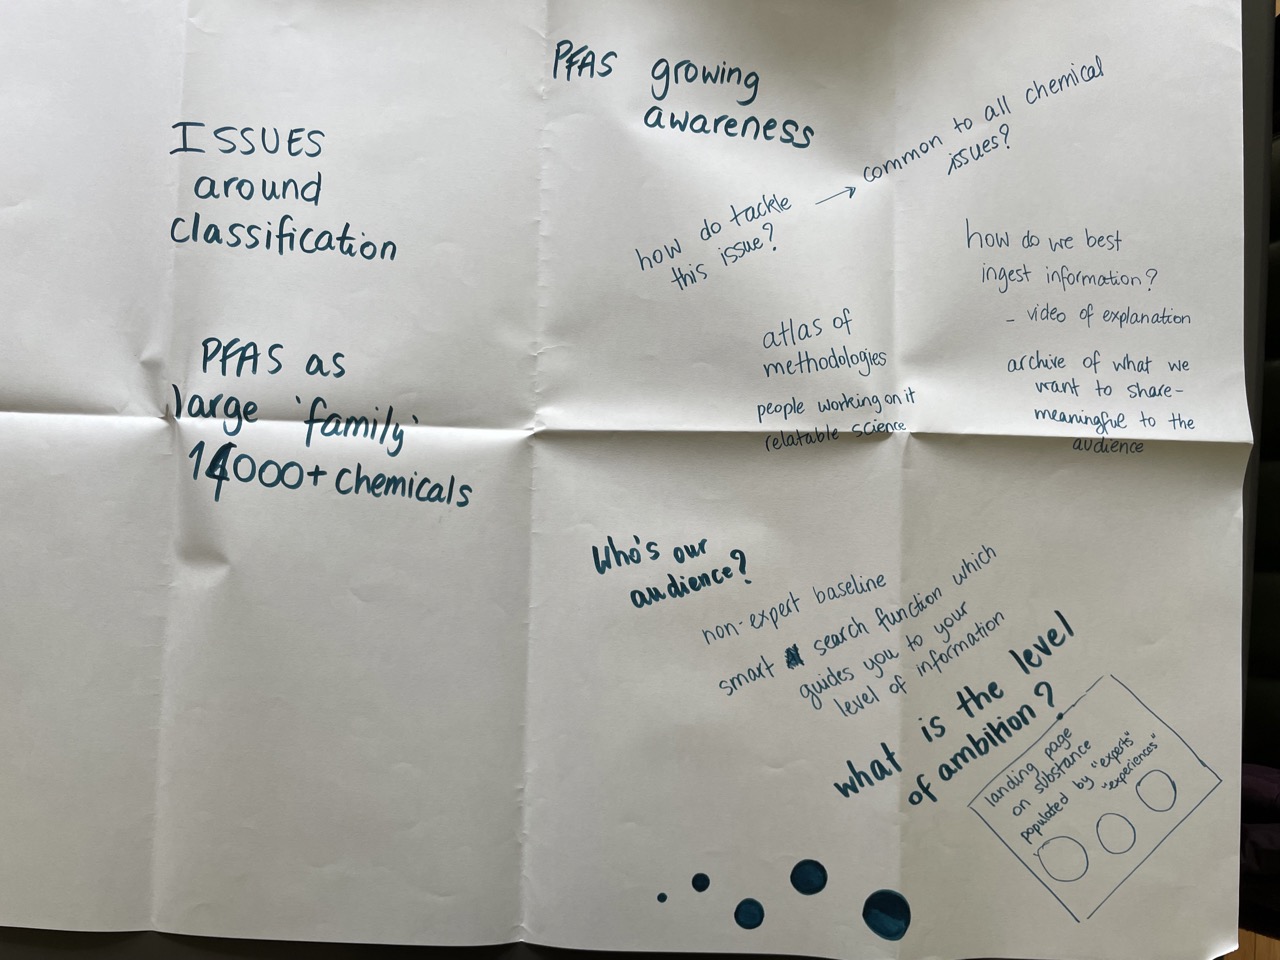 ISSUES
around
classification
PFAS as
large 'family'
14000+ chemicals
PFAS growing
awareness
how do tackle
this issue?
→ common to all chemical
issues?
how do we best
ingest information?
- video of explanation
archive of what we
want to share-
meaningful to the
audience
atlas of
methodologies
people working on it
relatable science
Who's our
audience?
non-expert baseline
smart search function which
guides you to your
level of information
what is the level
of ambition?
landing page
on substance
populated by "experts"
"experiences"